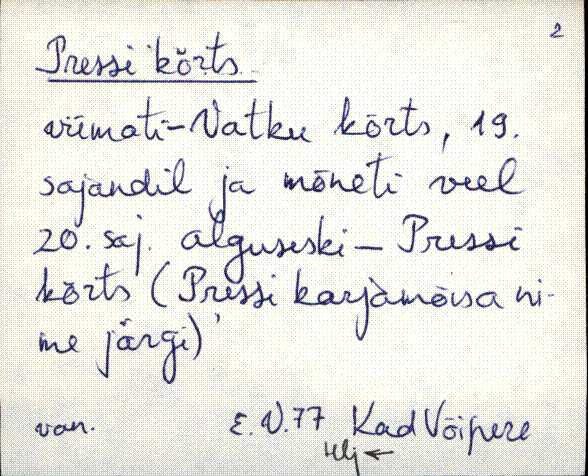 2
Pressi kõrts
viimati - Vatku kõrts, 19.
sajandil ja mõneti veel
20. saj. alguseski - Pressi
kõrts (Pressi karjamõisa ni-
me järgi)
van. E.V.77 Kad Võipere
Hlj ←